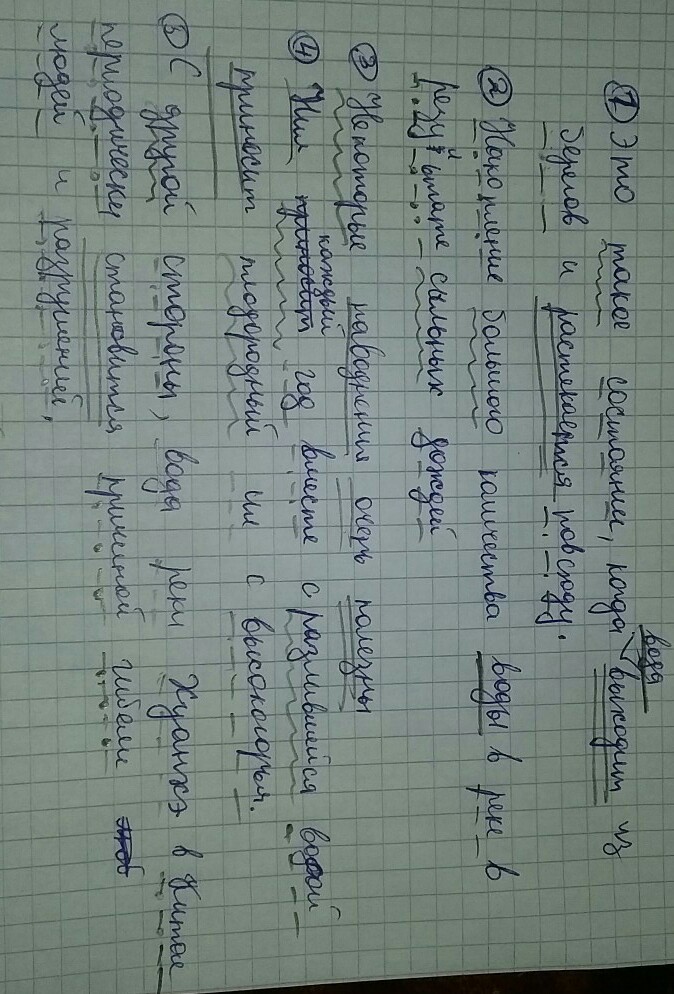 ① Это такое состояни, когда вода выходит из
берегов и растекается повсюду.
② Накопление большого каличества воды в реке в
результате сильных дождей
③ Некоторые наводнения очень полезны
④ Нил каждый год вместе с разлившейся водой
приносит плодородный ил с высокогорья.
⑤ С другой стороны, вода реки Хуанхэ в Китае
периодически становится причиной гибели
людей и разрушений,